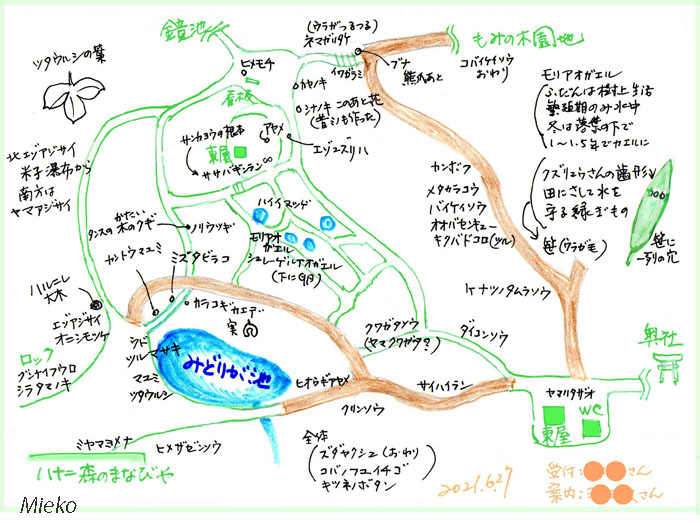 鏡池
(ウラがつるつる)
ネマガリダケ
もみの木園地
ツタウルシの葉
ヒメモチ
イワガラミ
ブナ
熊爪あと
コバイケイソウ
おわり
看板
カセノキ
シナノキ このあと花
(昔ミもう作った)
モリアオガエル
ふだんは樹上生活
繁殖期のみ水中
冬は落葉の下で
1～1.5年でカエルに
サンカヨウの根本
アセメ
東屋
エゾユズリハ
ササバギンラン
北エゾアジサイ
米子瀑布から
南方は
ヤマアジサイ
クズリュウさんの歯形
田にさして水を
守る縁ぎもの
笹(ウラが毛)
笹に
一列の穴
カンボク
メタカラコウ
バイケイソウ
オオバセンキュー
キクバドコロ(ツル)
ハイイヌツゲ
かたい
タンスの木のクギ
ノリウツギ
カントウマユミ
ミズタビラコ
モリアオ
ガエル
シュレーゲルアオガエル
(下に卵)
ハルニレ
大木
エゾアジサイ
オニシモツケ
カラコギカエデ
実
ケナツノタムラソウ
クワガタソウ
(ヤマクワガタ?)
ダイコンソウ
奥社
ロック
グンナイフウロ
シラタマノキ
シド
ツルマサキ
マユミ
ツタウルシ
みどりが池
ヒオウギアヤメ
サイハイラン
ヤマハタザオ
東屋
WC
クリンソウ
ミヤマヨメナ
ヒメザゼンソウ
ハナニ森のまなびや
全体
(ズダヤクシュ(おわり)
コバノフユイチゴ
キツネノボタン)
2021.6.27
受付:さん
案内:さん
Mieko